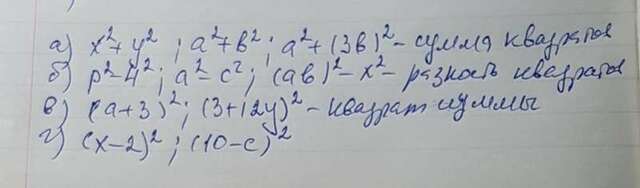 а) x²+y² ; a²+b² ; a²+(3b)² – сумма квадратов
б) p²–4² ; a²–c² ; (ab)²–x² – разность квадратов
в) (a+3)² ; (3+12y)² – квадрат суммы
г) (x–2)² ; (10–c)²